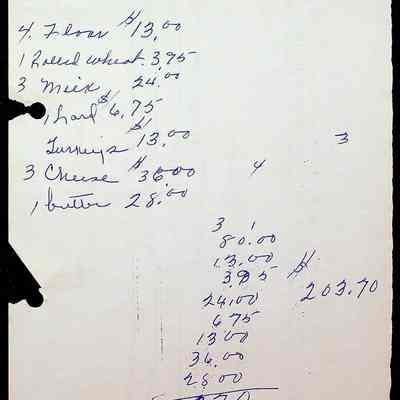 4 Floar $13.00
1 Rolled wheat 3.95
3 Milk 24.00
1 Lard $6.75
Turneys $13.00
3 Cheese $36.00
1 butter 28.00
3
4
3 1
80.00
13.00
3.95 $
203.70
24.00
6 75
13 00
36.00
28 00